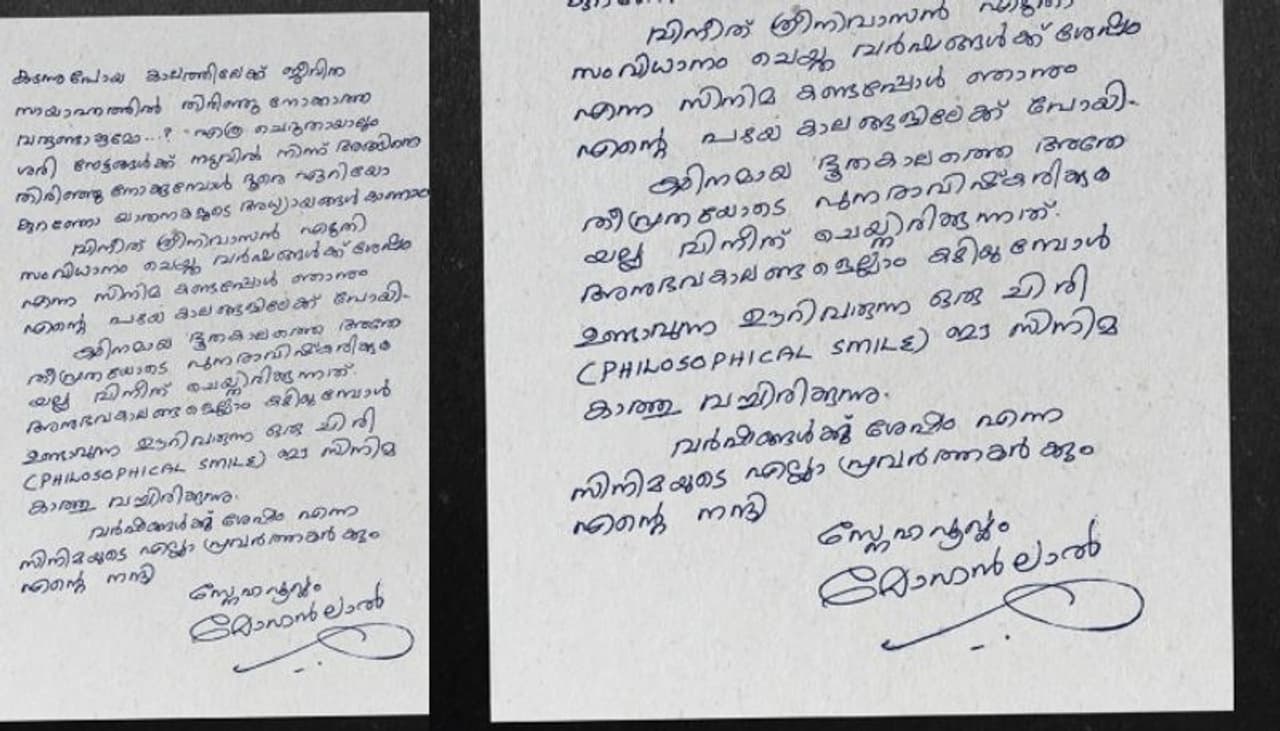 കടന്നുപോയ കാലത്തിലേക്ക് ജീവിത
സായാഹ്നത്തിൽ തിരിഞ്ഞു നോക്കാത്ത
വരുണ്ടാകുമോ...? എത്ര ചെറുതായാലും
ശരി നേട്ടങ്ങൾക്ക് നടുവിൽ നിന്ന് അങ്ങിനെ
തിരിഞ്ഞു നോക്കുമ്പോൾ ദൂരെ ഏറിയോ
കുറഞ്ഞോ യാതനകളുടെ അധ്യായങ്ങൾ
വിനീത് ശ്രീനിവാസൻ എഴുതി
സംവിധാനം ചെയ്ത വർഷങ്ങൾക്ക് ശേഷം
എന്ന സിനിമ കണ്ടപ്പോൾ ഞാനും
എന്റെ പഴയ കാലങ്ങളിലേക്ക് പോയി.
കഠിനമായ ഭൂതകാലത്തെ അതേ
തീവ്രതയോടെ പുനരാവിഷ്കരിക്കുക
യല്ല വിനീത് ചെയ്തിരിക്കുന്നത്.
അനുഭവകാലങ്ങളെല്ലാം കഴിയുമ്പോൾ
ഉണ്ടാവുന്ന ഊറിവരുന്ന ഒരു ചിരി
(PHILOSOPHICAL SMILE) ഈ സിനിമ
കാത്തു വച്ചിരിക്കുന്നു.
വർഷങ്ങൾക്കു് ശേഷം എന്ന
സിനിമയുടെ എല്ലാ പ്രവർത്തകർക്കും
എന്റെ നന്ദി
സ്നേഹപൂർവ്വം
മോഹൻലാൽ
വിനീത് ശ്രീനിവാസൻ എഴുതി
സംവിധാനം ചെയ്ത വർഷങ്ങൾക്ക് ശേഷം
എന്ന സിനിമ കണ്ടപ്പോൾ ഞാനും
എന്റെ പഴയ കാലങ്ങളിലേക്ക് പോയി.
കഠിനമായ ഭൂതകാലത്തെ അതേ
തീവ്രതയോടെ പുനരാവിഷ്കരിക്കുക
യല്ല വിനീത് ചെയ്തിരിക്കുന്നത്.
അനുഭവകാലങ്ങളെല്ലാം കഴിയുമ്പോൾ
ഉണ്ടാവുന്ന ഊറിവരുന്ന ഒരു ചിരി
(PHILOSOPHICAL SMILE) ഈ സിനിമ
കാത്തു വച്ചിരിക്കുന്നു.
വർഷങ്ങൾക്കു് ശേഷം എന്ന
സിനിമയുടെ എല്ലാ പ്രവർത്തകർക്കും
എന്റെ നന്ദി
സ്നേഹപൂർവ്വം
മോഹൻലാൽ